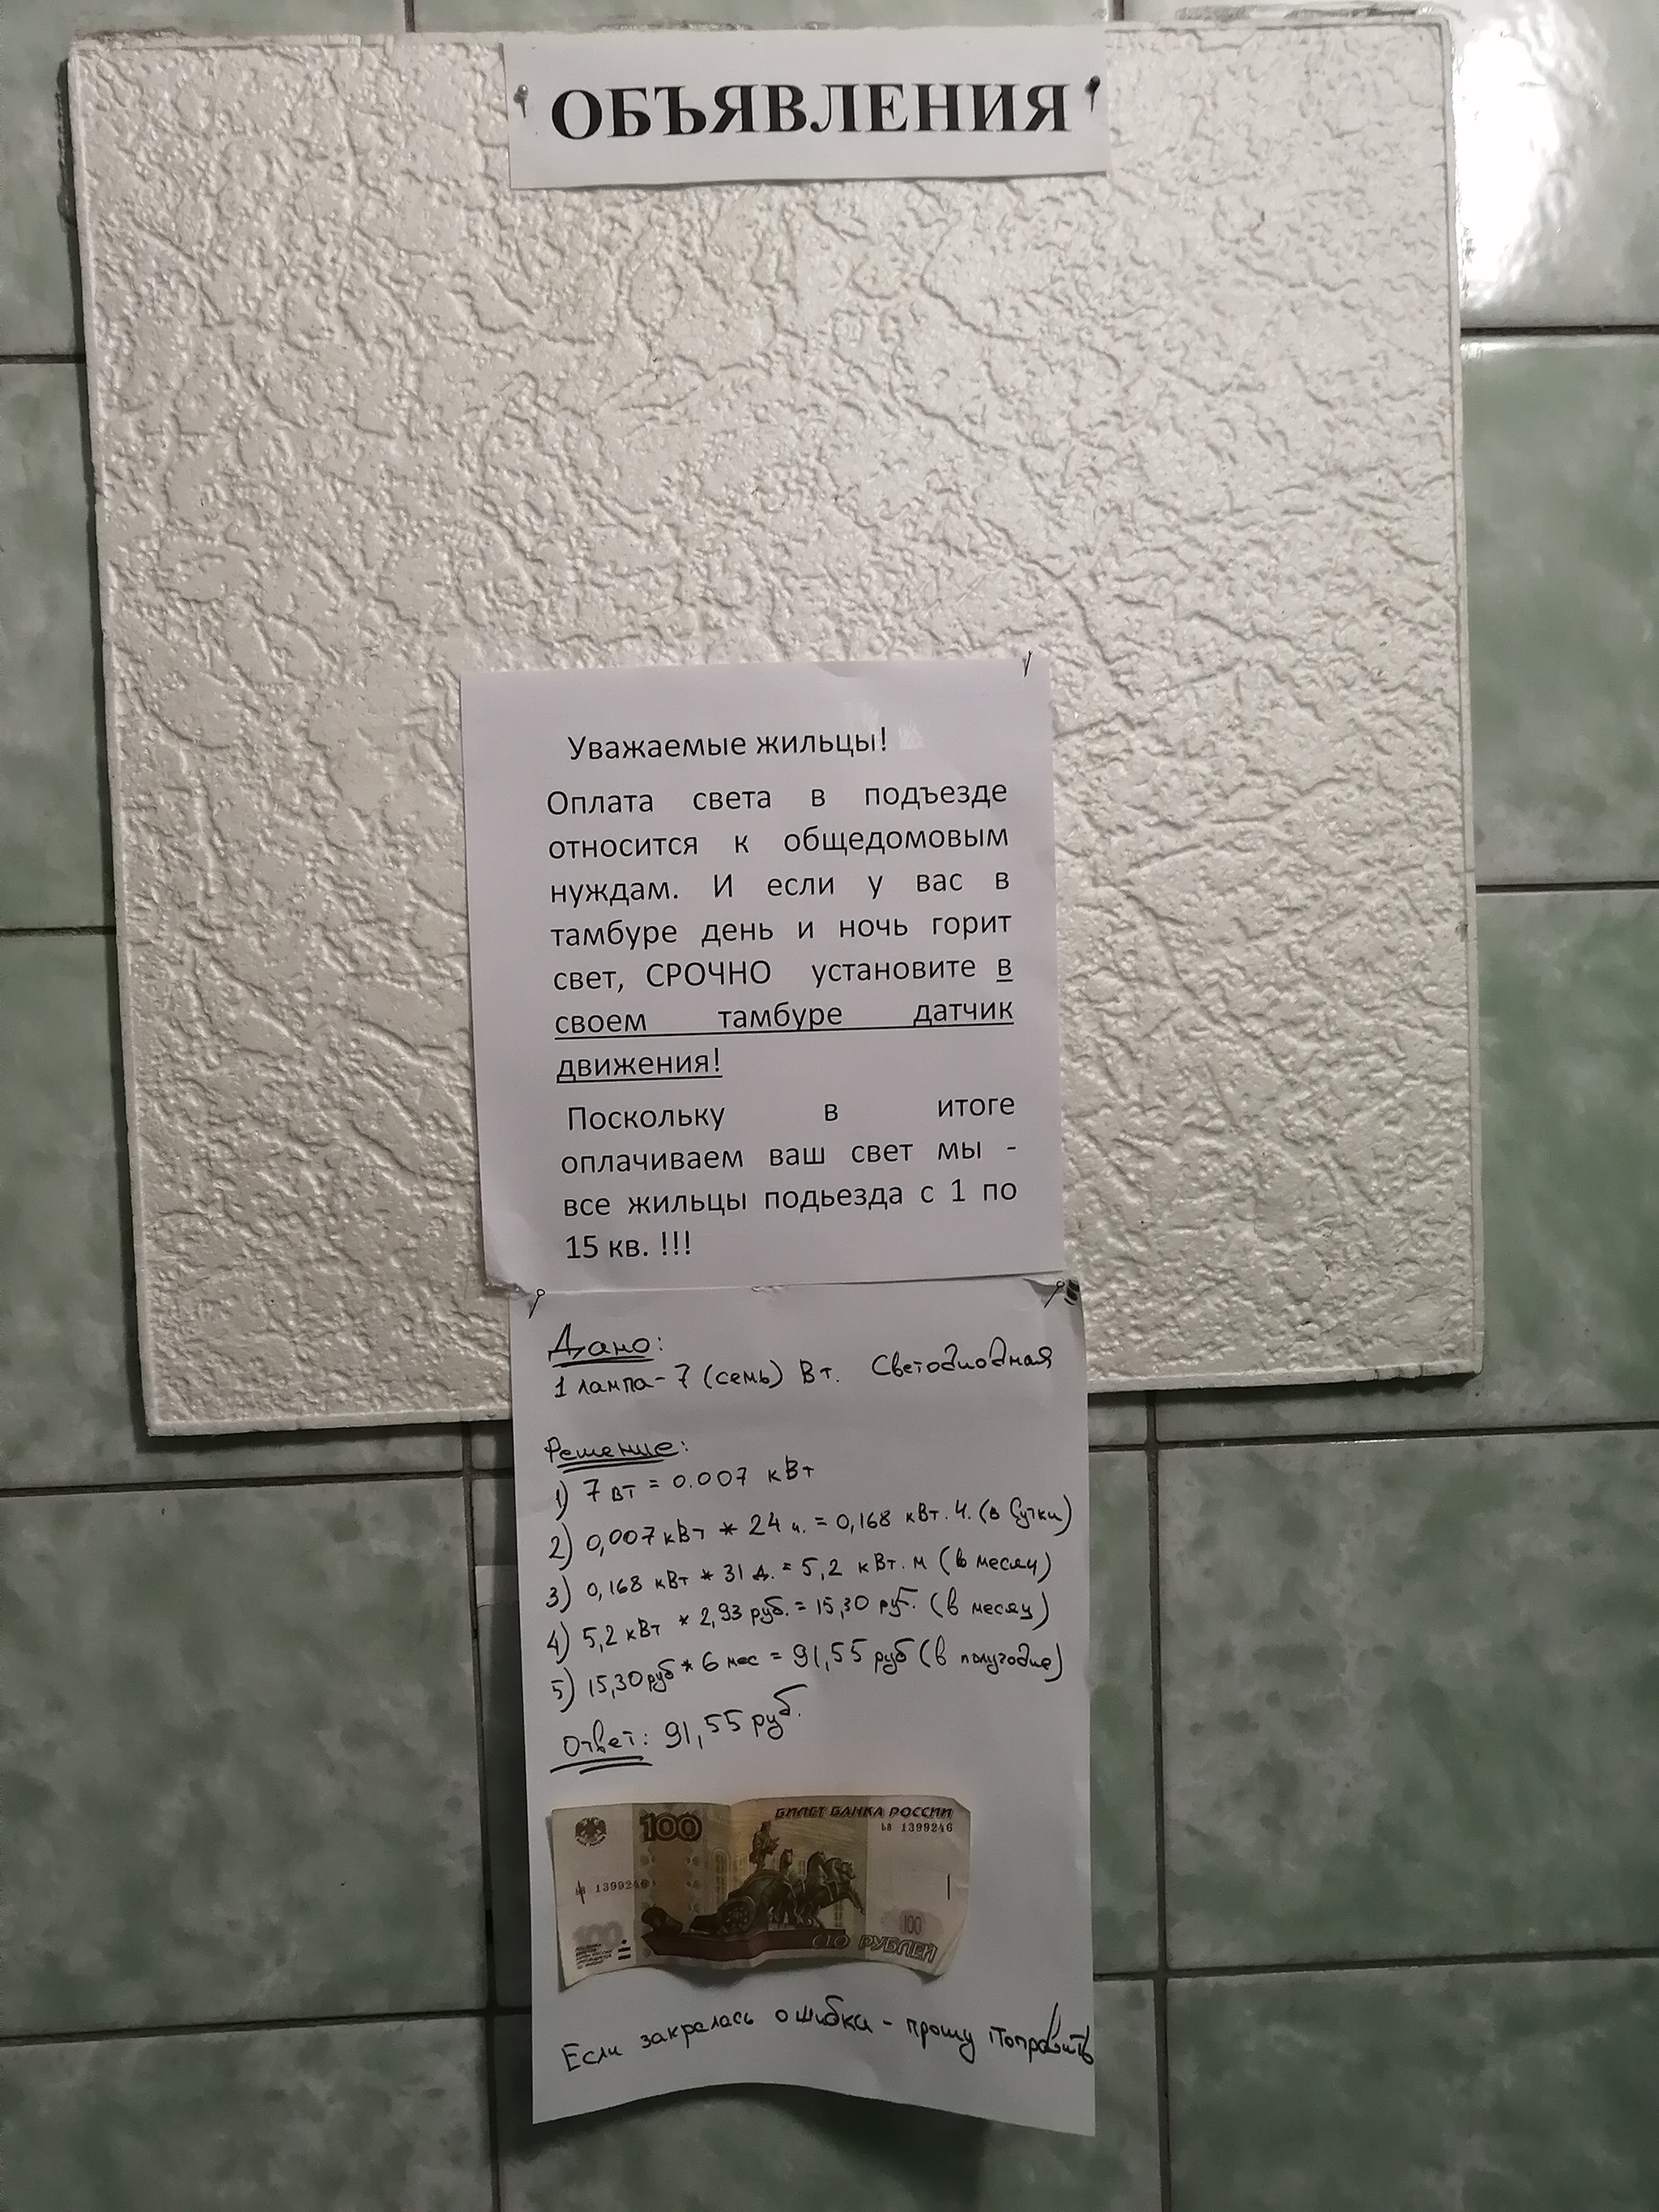 ОБЪЯВЛЕНИЯ
Уважаемые жильцы!
Оплата света в подъезде
относится к общедомовым
нуждам. И если у вас в
тамбуре день и ночь горит
свет, СРОЧНО установите в
своем тамбуре датчик
движения!
Поскольку в итоге
оплачиваем ваш свет мы -
все жильцы подьезда с 1 по
15 кв. !!!
Дано:
1 лампа - 7 (семь) Вт. Светодиодная
Решение:
1) 7 вт = 0.007 кВт
2) 0,007 кВт * 24 ч. = 0,168 кВт.ч. (в сутки)
3) 0,168 кВт * 31 д. = 5,2 кВт.м (в месяц)
4) 5,2 кВт * 2,93 руб. = 15,30 руб. (в месяц)
5) 15,30 руб * 6 мес = 91,55 руб (в полугодие)
Ответ: 91,55 руб.
100
БИЛЕТ БАНКА РОССИИ
ЬВ 1399246
1399246
100
100
СТО РУБЛЕЙ
Если закралась ошибка - прошу поправить